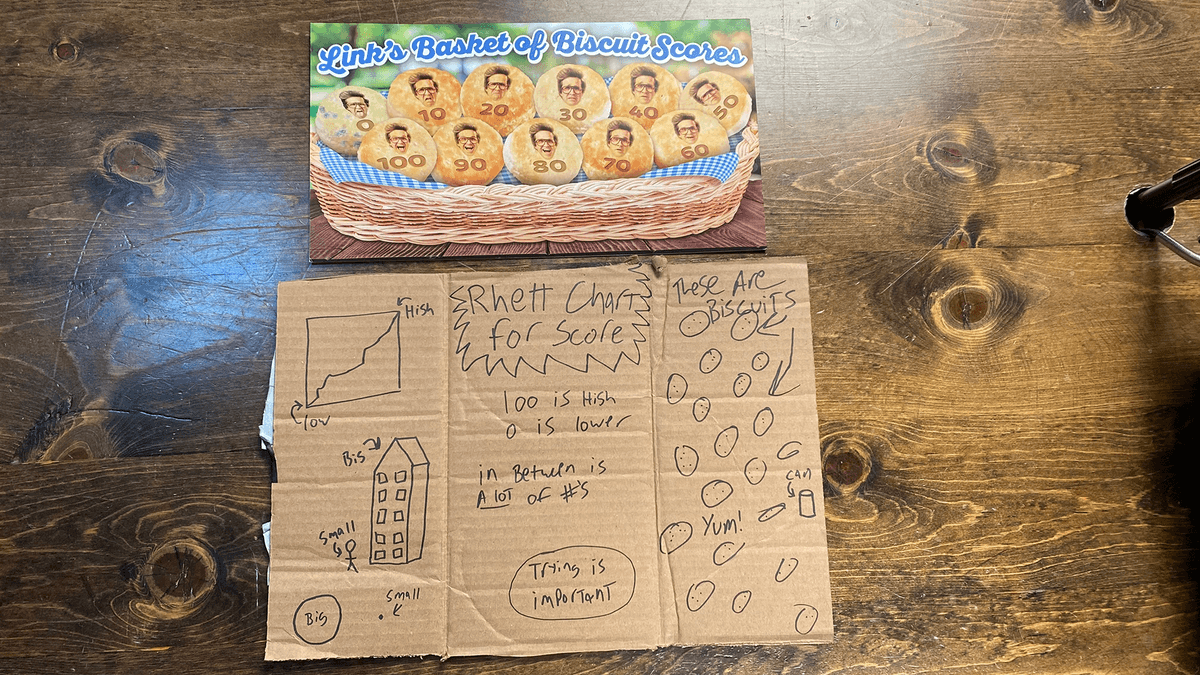 Link's Basket of Biscuit Scores
0
10
20
30
40
50
100
90
80
70
60
High
low
Big
Small
Big
small
Rhett Chart
for Score
100 is High
0 is lower
in Between is
A LOT of #'s
Trying is
important
These Are
Biscuits
CAN
Yum!